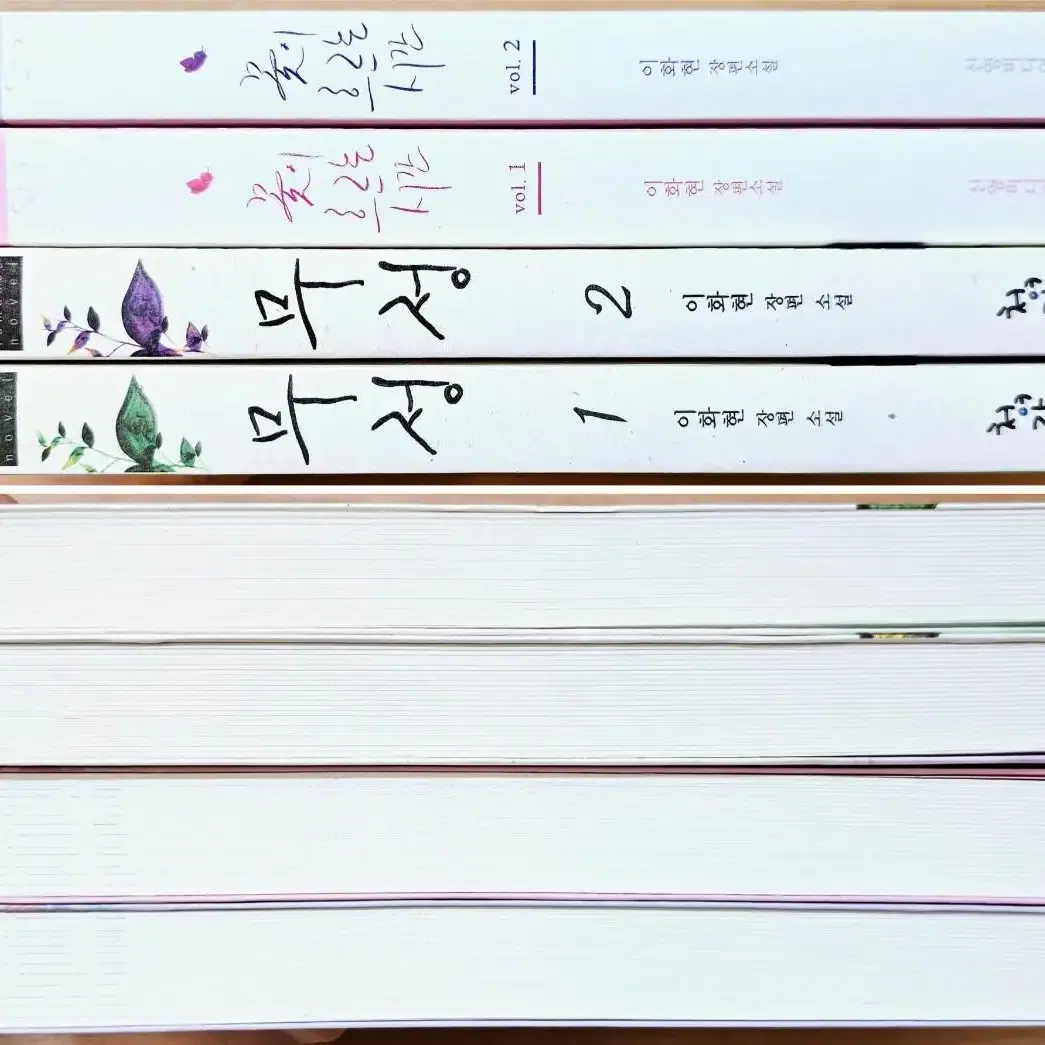 꽃이
시간
vol. 2
이화현 장편소설
꽃이
시간
vol. 1
이화현 장편소설
novel
무정
2
이화현 장편 소설
novel
무정
1
이화현 장편 소설